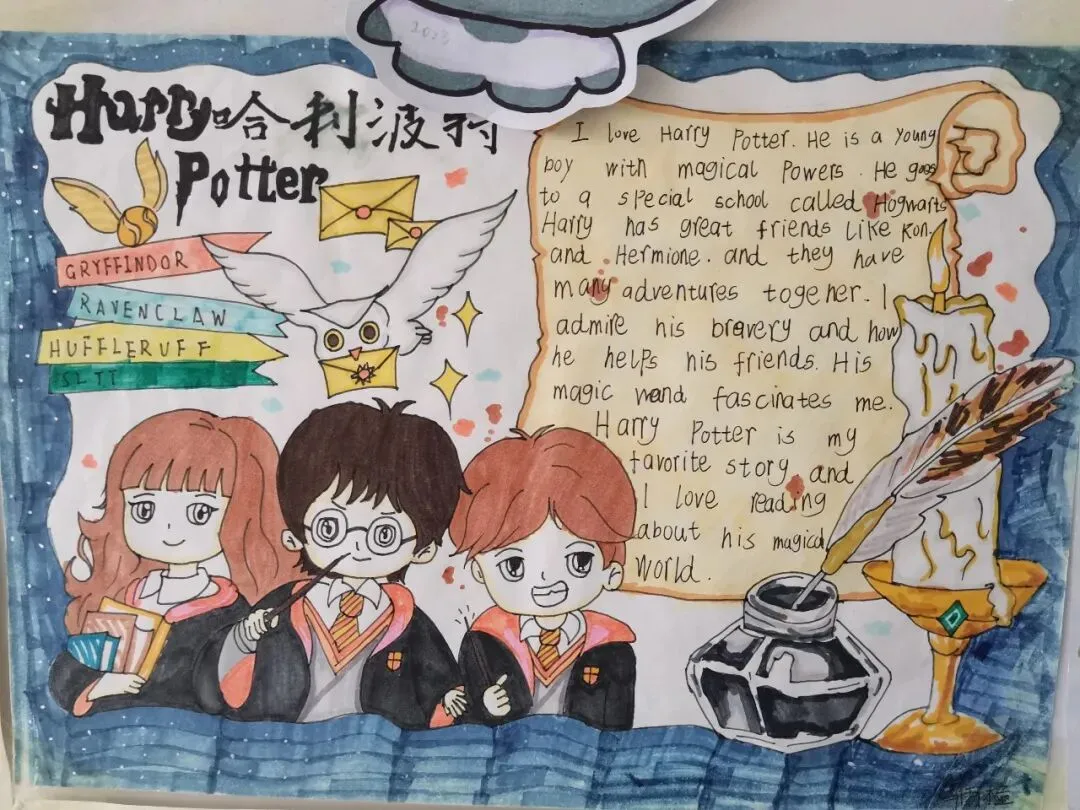 2023
Harry 哈利波特
Potter
GRYFFINDOR
RAVENCLAW
HUFFLERUFF
SLTT
I love Harry Potter. He is a young
boy with magical Powers. He goes
to a special school called Hogwarts
Harry has great friends like Ron.
and Hermione. and they have
many adventures together. I
admire his bravery and how
he helps his friends. His
magic wand fascinates me.
Harry Potter is my
favorite story and
I love reading
about his magical
world.